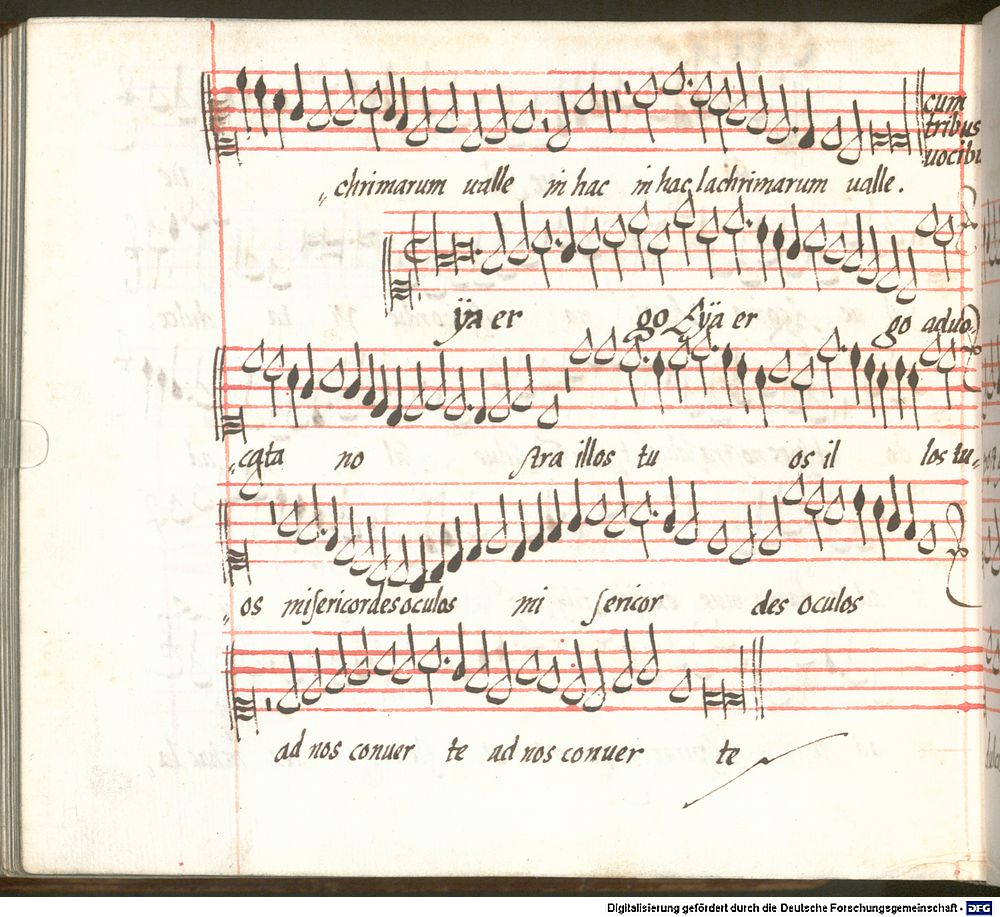 cum
tribus
vocibu
„chrimarum ualle in hac in hac lachrimarum ualle.
ÿa er go Eÿa er go aduo„
„cata no stra illos tu os il los tu„
„os misericordes oculos mi sericor des oculos
ad nos conuer te ad nos conuer te
Digitalisierung gefördert durch die Deutsche Forschungsgemeinschaft - DFG